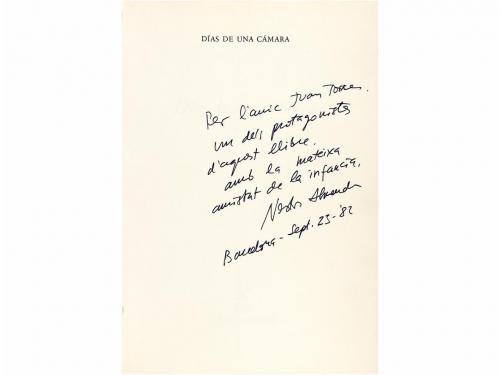 DÍAS DE UNA CÁMARA
Per l'amic Juan Torres.
un dels protagonistes
d'aquest llibre.
amb la mateixa
amistat de la infancia,
Nestor Almendros
Barcelona - Sept. 23-'82